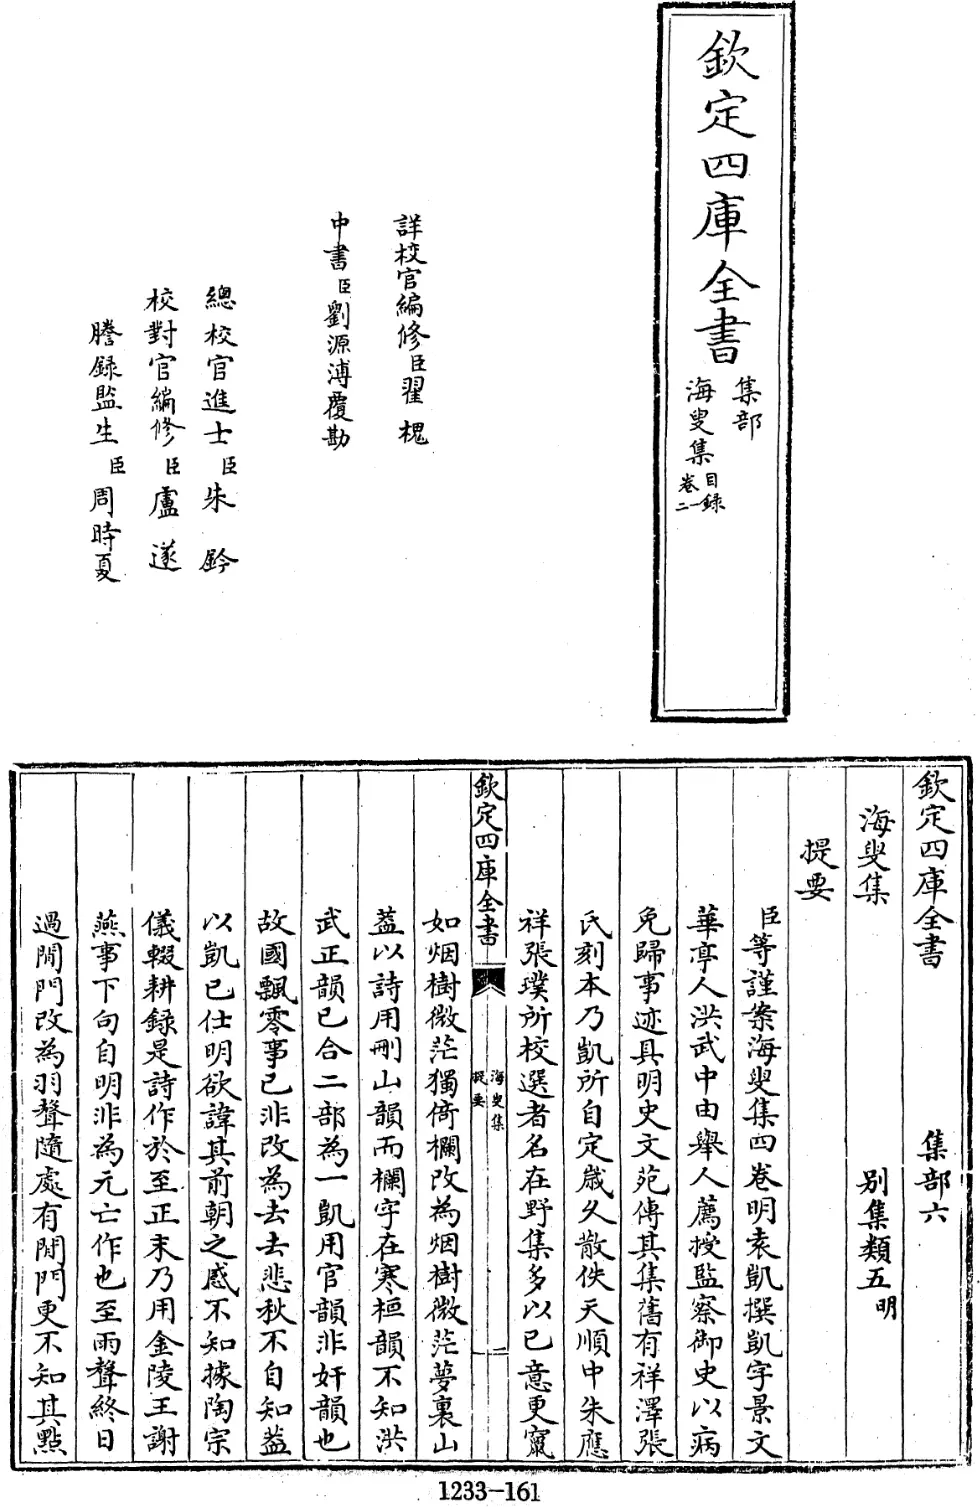 欽定四庫全書
集部
海叟集
目錄
卷一
二
詳校官編修臣翟槐
中書臣劉源溥覆勘
總校官進士臣朱鈐
校對官編修臣盧遂
謄錄監生臣周時夏
欽定四庫全書　集部六
海叟集　別集類五明
提要
臣等謹案海叟集四卷明袁凱撰凱字景文
華亭人洪武中由舉人薦授監察御史以病
免歸事迹具明史文苑傳其集舊有祥澤張
氏刻本乃凱所自定歲久散佚天順中朱應
祥張璞所校選者名在野集多以已意更竄
欽定四庫全書
海叟集
提要
一
如烟樹微茫獨倚欄改為烟樹微茫夢裏山
葢以詩用刪山韻而欄字在寒桓韻不知洪
武正韻已合二部為一凱用官韻非奸韻也
故國飄零事已非改為去去悲秋不自知葢
以凱已仕明欲諱其前朝之感不知據陶宗
儀輟耕錄是詩作於至正末乃用金陵王謝
燕事下句自明非為元亡作也至雨聲終日
過閒門改為羽聲隨處有閒門更不知其㸃
1233-161